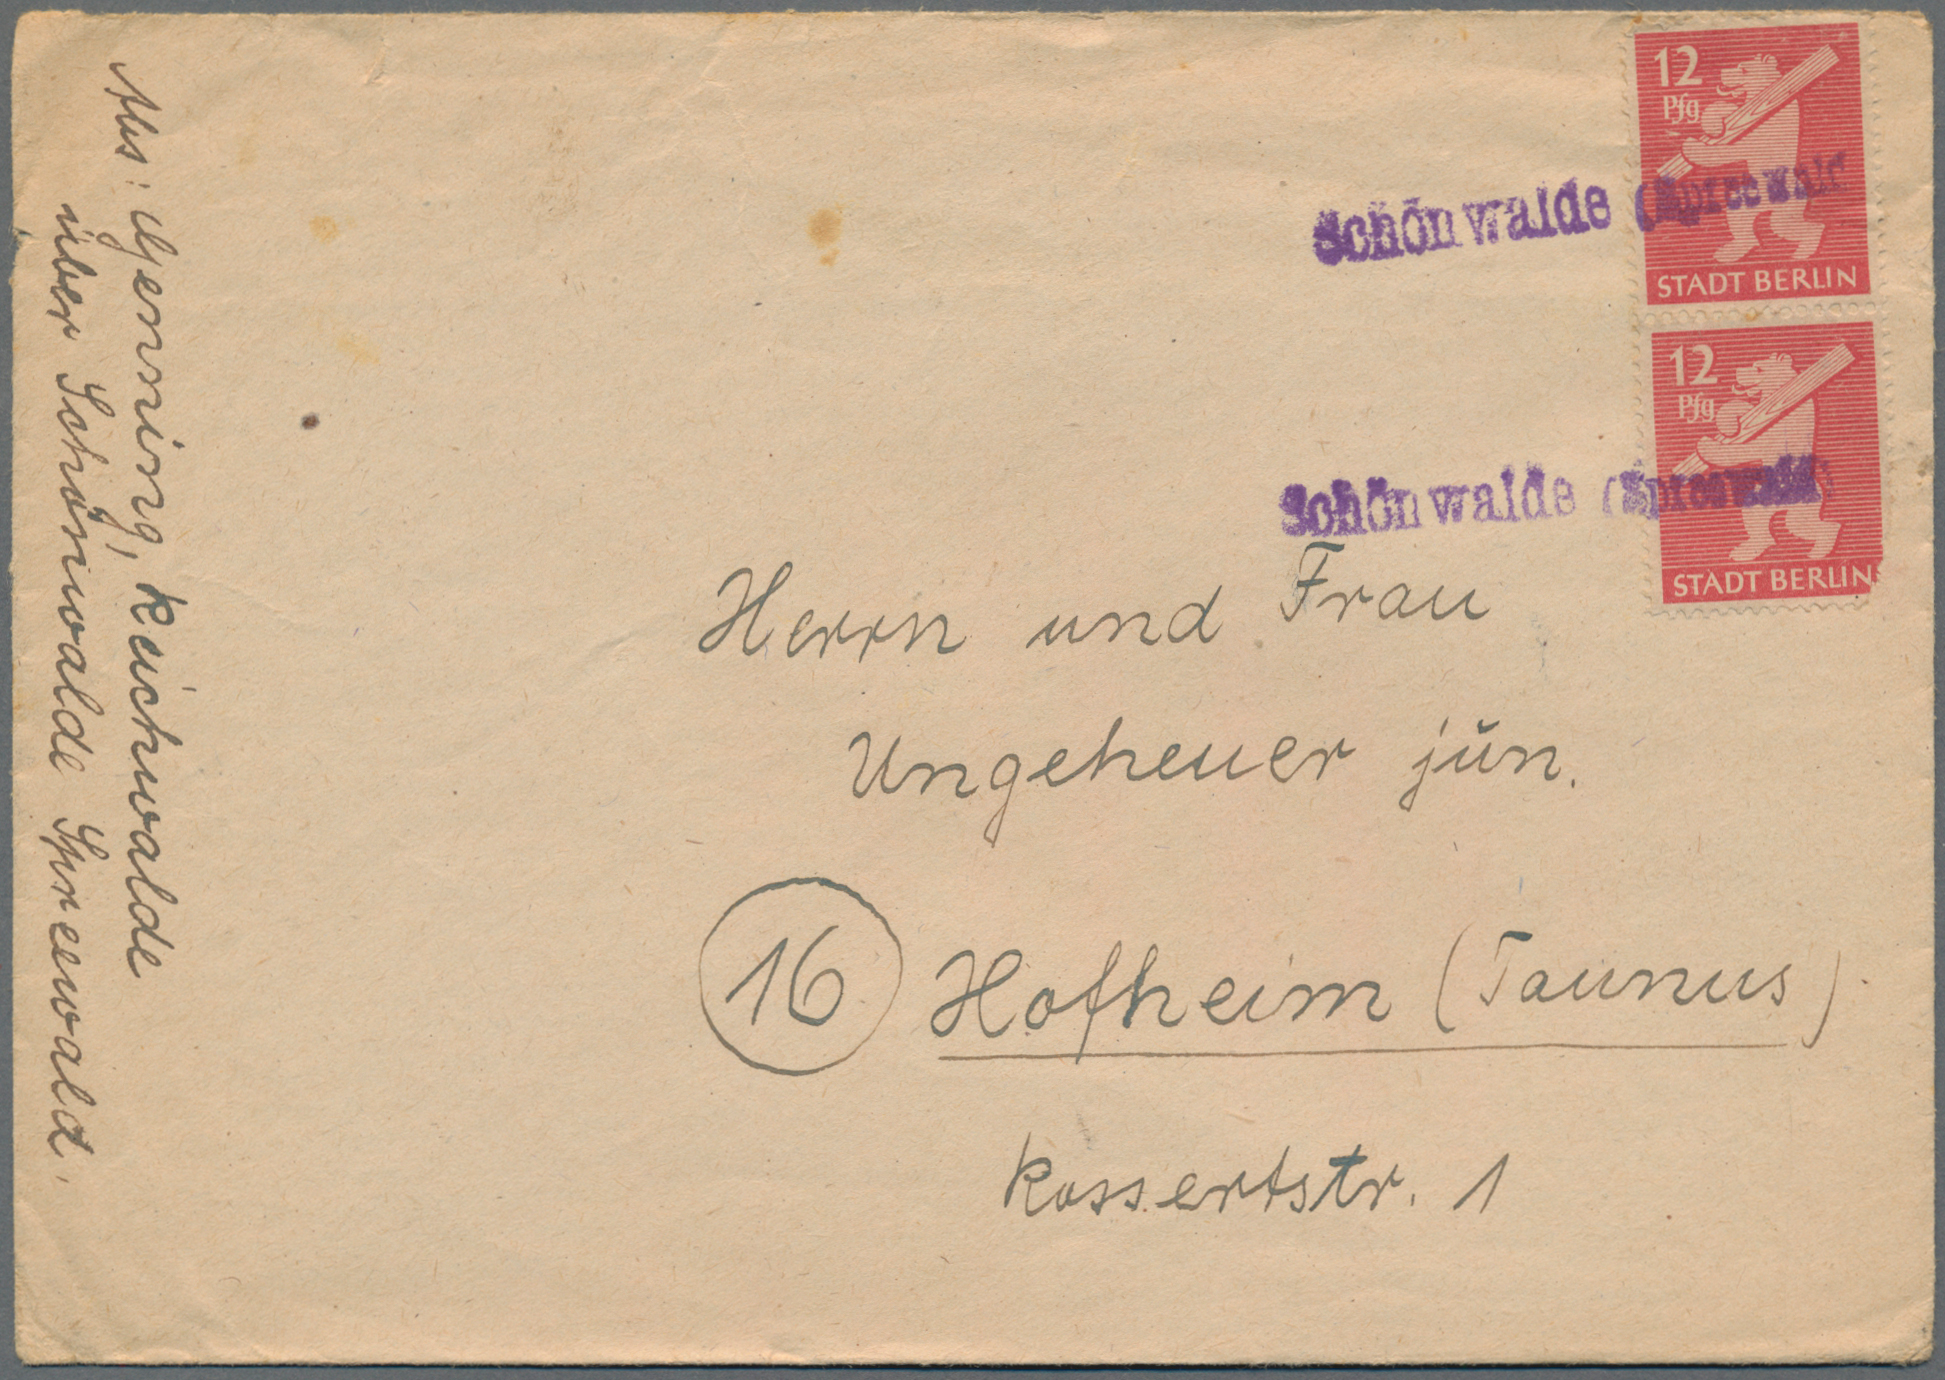 Abs: Genning, Reichwalde
über Schönwalde Spreewald.
12
Pfg
STADT BERLIN
Schönwalde (Spreewald)
12
Pfg
STADT BERLIN
Schönwalde (Spreewald)
Herrn und Frau
Ungeheuer jŭn.
16 Hofheim (Taunus)
Kossertstr. 1